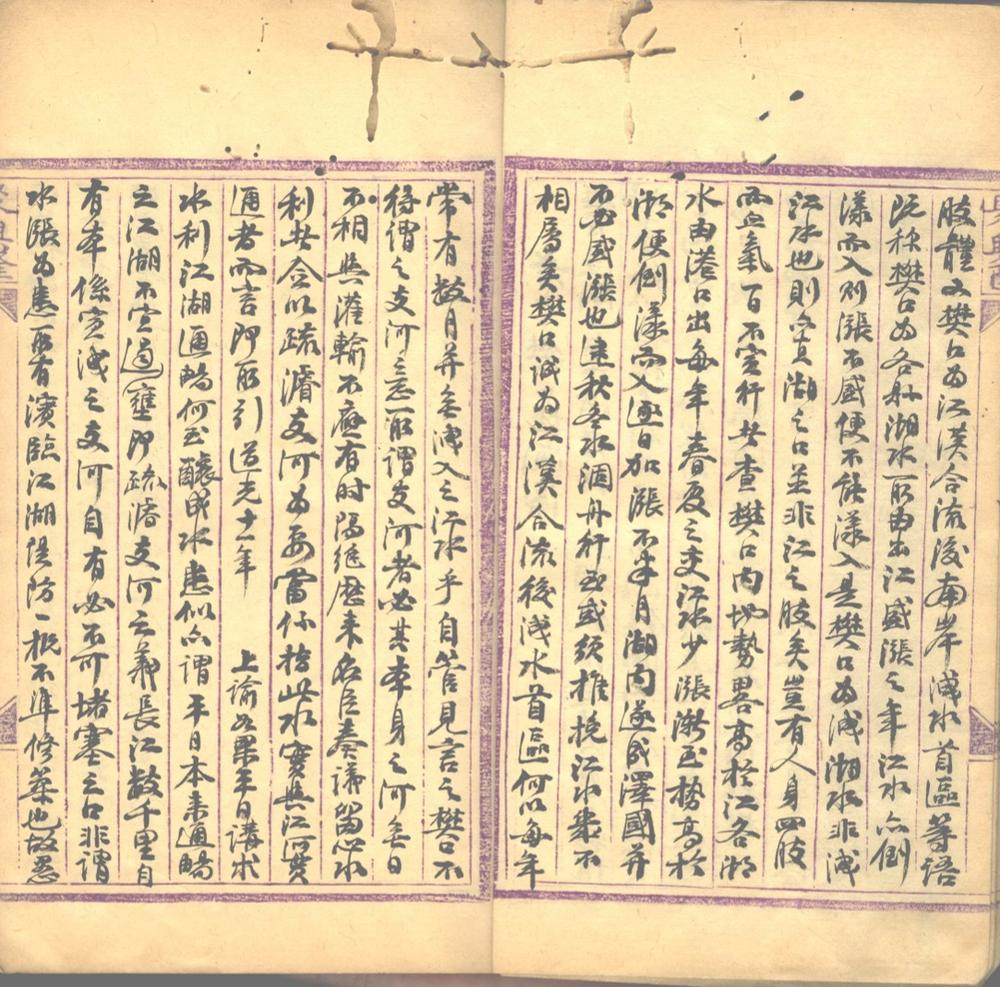 肢體又樊口為江漢合流後南岸減水首區等語
既稱樊口為各舡湖水所由出江盛漲之年江水亦倒
漾而入則漲不盛便不能漾入是樊口為減湖水非減
江水也則實湖之口並非江之肢矣豈有人身四肢
而血氣百不一行者查樊口內地勢畧高於江各湖
水由港口出每年春夏之交江水少漲漸至勢高於
湖便倒漾而入逐日加漲不半月湖內遂成澤國并
不必盛漲也逮秋冬水涸舟行至或須推挽江水與不
相屬矣樊口誠為江漢合流後減水首區何以每年
常有數月并無減入之江水乎自管見言之樊口不
得謂之支河之意所謂支河者必其本身之河無日
不相與灌輸不應有時隔絕歷來名臣奏議留心水
利者今以疏濬支河為要當係指此水實與江河貫
通者而言即所引道光十一年 上諭如果平日講求
水利江湖通暢何至釀成水患似亦謂平日本來通暢
之江湖不宜遏壅即疏濬支河之義長江數千里自
有本係宣減之支河自有必不可堵塞之口非謂
水漲為患所有濱臨江湖隄防一概不準修築也故愚